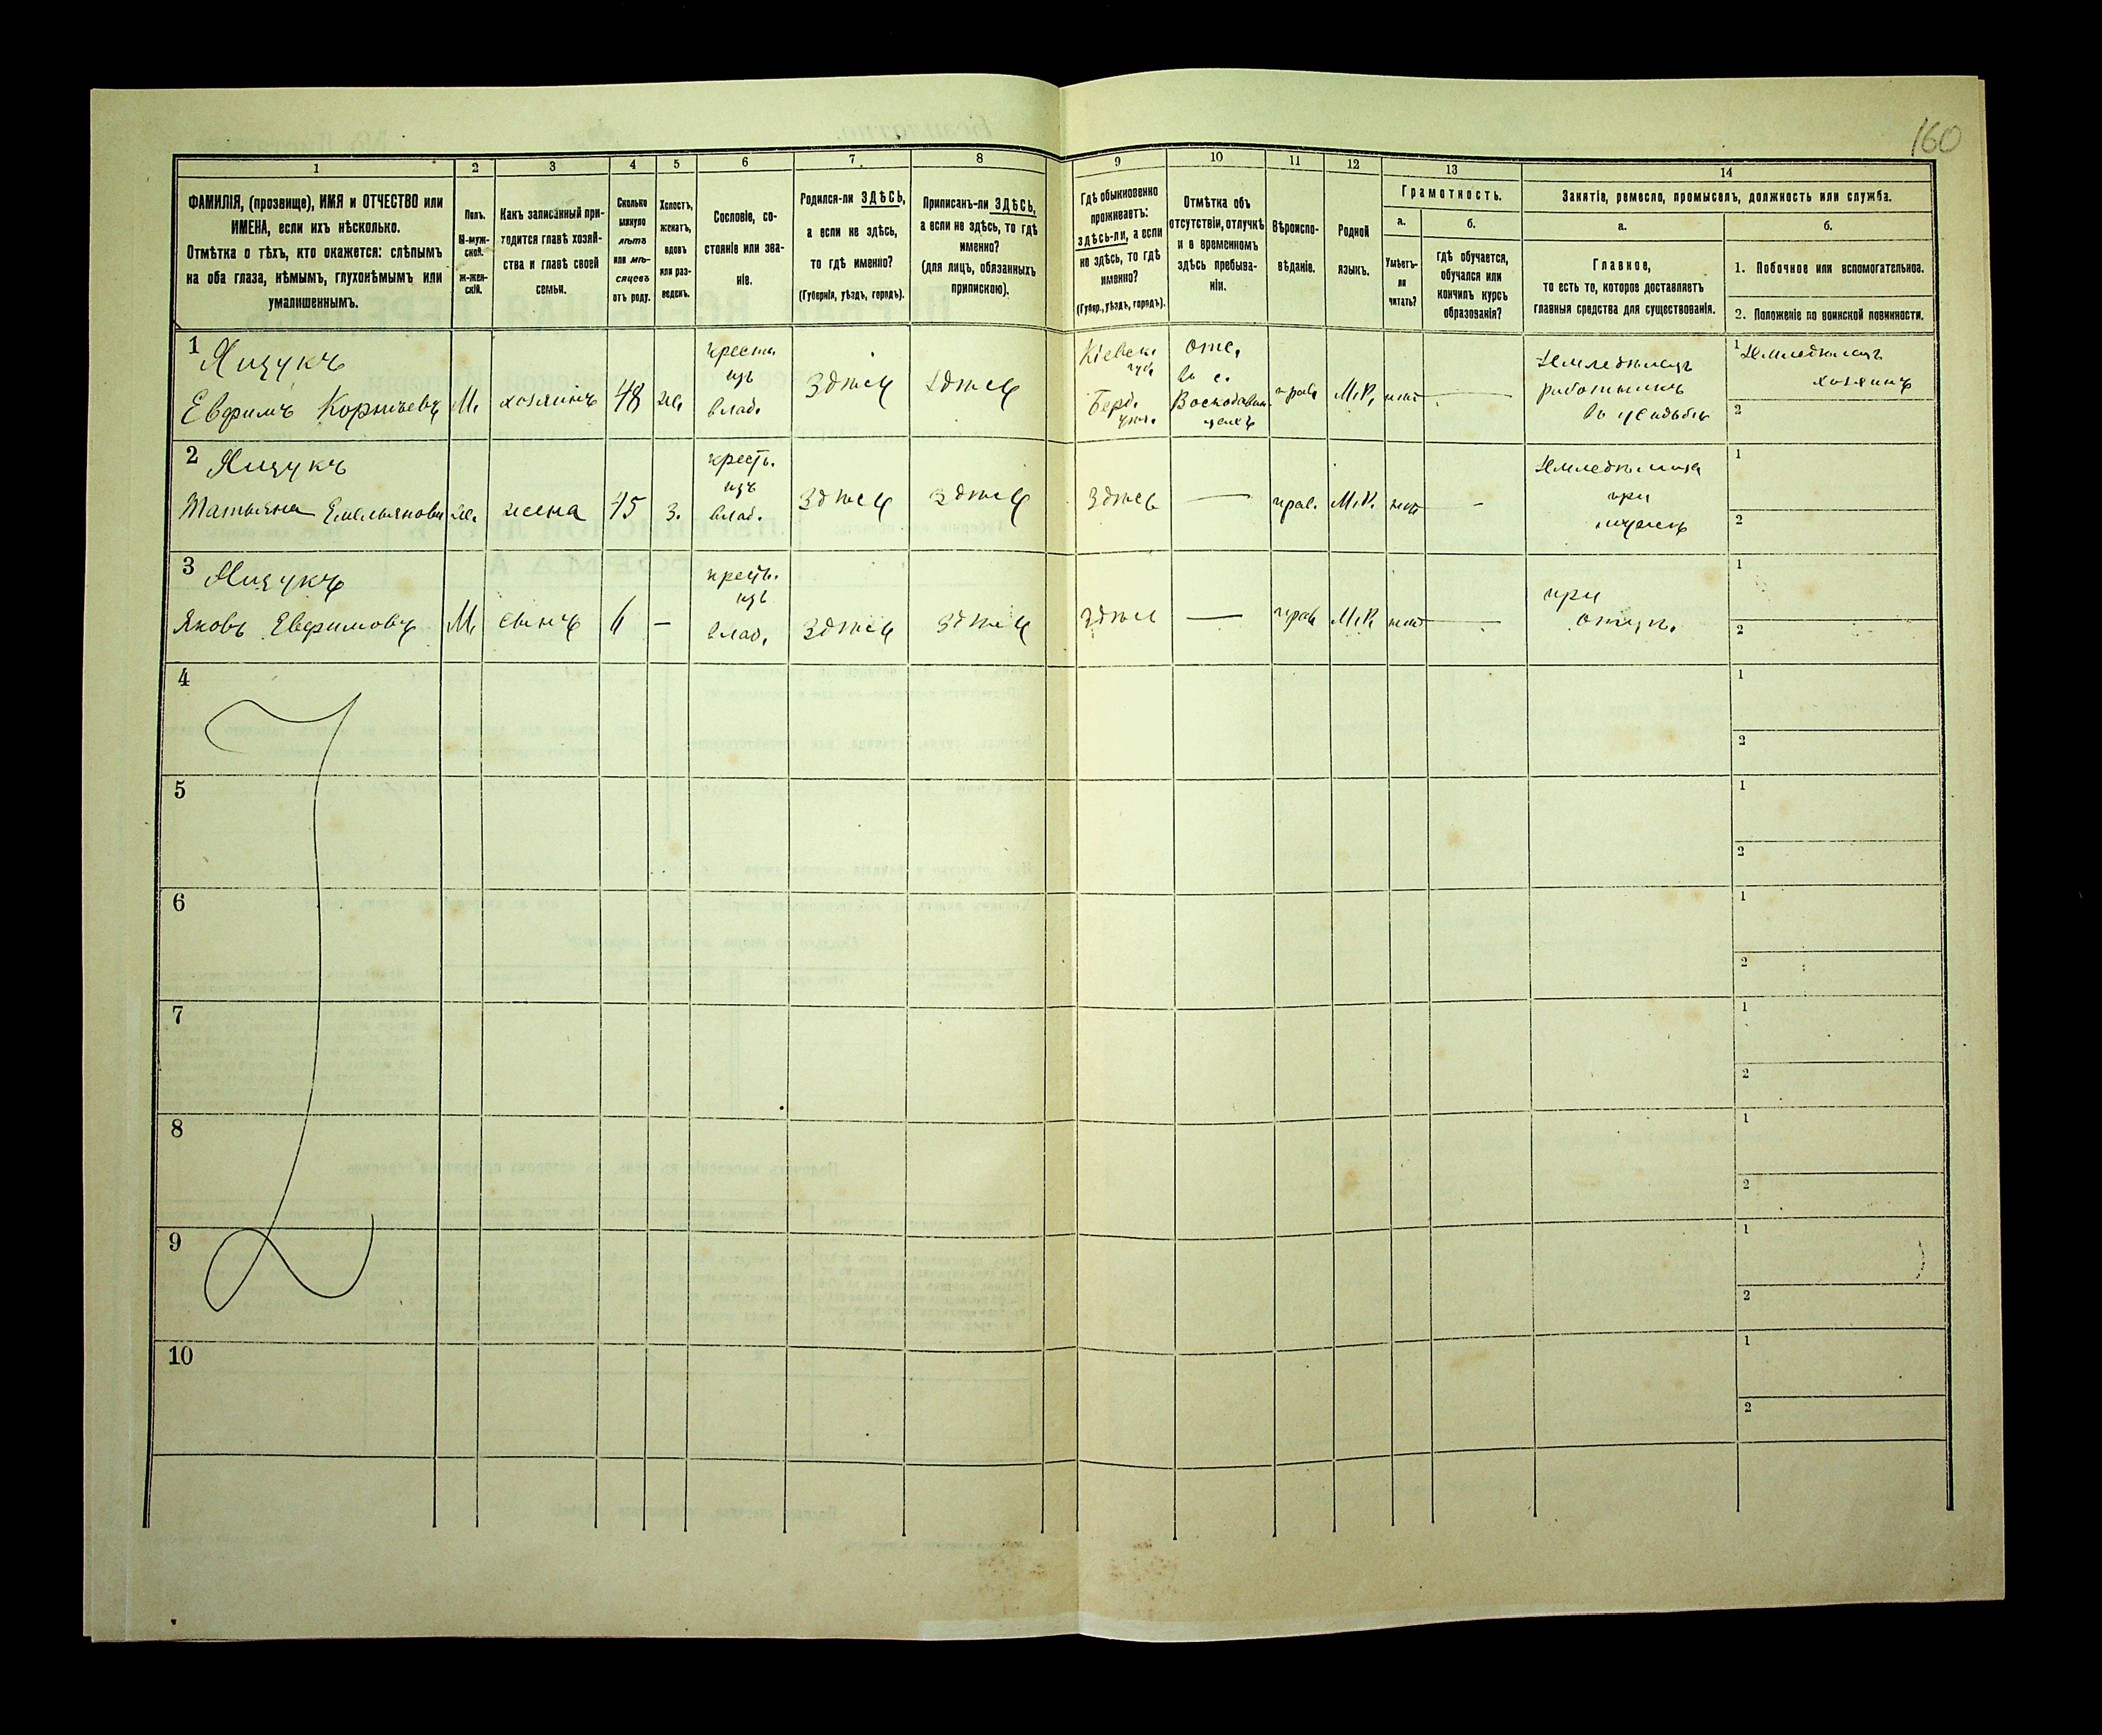 160
1 2 3 4 5 6 7 8 9 10 11 12 13 14
ФАМИЛІЯ, (прозвище), ИМЯ и ОТЧЕСТВО или
ИМЕНА, если ихъ нѣсколько.
Отмѣтка о тѣхъ, кто окажется: слѣпымъ
на оба глаза, нѣмымъ, глухонѣмымъ или
умалишеннымъ.
Полъ.
М-муж-
ской.
ж-жен-
скій.
Какъ записанный при-
ходится главѣ хозяй-
ства и главѣ своей
семьи.
Сколько
минуло
лѣтъ
или мѣ-
сяцевъ
отъ роду.
Холостъ,
женатъ,
вдовъ
или раз-
веденъ.
Сословіе, со-
стояніе или зва-
ніе.
Родился-ли ЗДѢСЬ,
а если не здѣсь,
то гдѣ именно?
(Губернія, уѣздъ, городъ).
Приписанъ-ли ЗДѢСЬ,
а если не здѣсь, то гдѣ
именно?
(для лицъ, обязанныхъ
припискою).
Гдѣ обыкновенно
проживаетъ:
здѣсь-ли, а если
не здѣсь, то гдѣ
именно?
(Губер., уѣздъ, городъ).
Отмѣтка объ
отсутствіи, отлучкѣ
и о временномъ
здѣсь пребыва-
ніи.
Вѣроиспо-
вѣданіе.
Родной
языкъ.
Грамотность.
а.
Умѣетъ-
ли
читать?
б.
гдѣ обучается,
обучался или
кончилъ курсъ
образованія?
Занятіе, ремесло, промыселъ, должность или служба.
а.
Главное,
то есть то, которое доставляетъ
главныя средства для существованія.
б.
1. Побочное или вспомогательное.
2. Положеніе по воинской повинности.
1
Ящукъ
Евфимъ Корнѣевъ
М.
хозяинъ
48
же.
крестн.
изъ
влад.
Здѣсь
Здѣсь
Кіевск.
губ.
Берд.
уѣз.
отс.
въ с.
прав.
М.Р.
нѣтъ
—
земледѣлецъ
работникъ
въ усадьбѣ
1
земледѣлецъ
хозяинъ
2
2
Ящукъ
Татьяна Емельянова
же.
жена
45
з.
крест.
изъ
влад.
Здѣсь
Здѣсь
Здѣсь
—
прав.
М.Р.
нѣтъ
—
при
мужѣ
1
2
3
Ящукъ
Яковъ Евфимовъ
М.
сынъ
6
—
крест.
изъ
влад.
Здѣсь
Здѣсь
Здѣсь
—
прав.
М.Р.
нѣтъ
—
при
отцѣ.
1
2
4
1
2
5
1
2
6
1
2
7
1
2
8
1
2
9
1
2
10
1
2